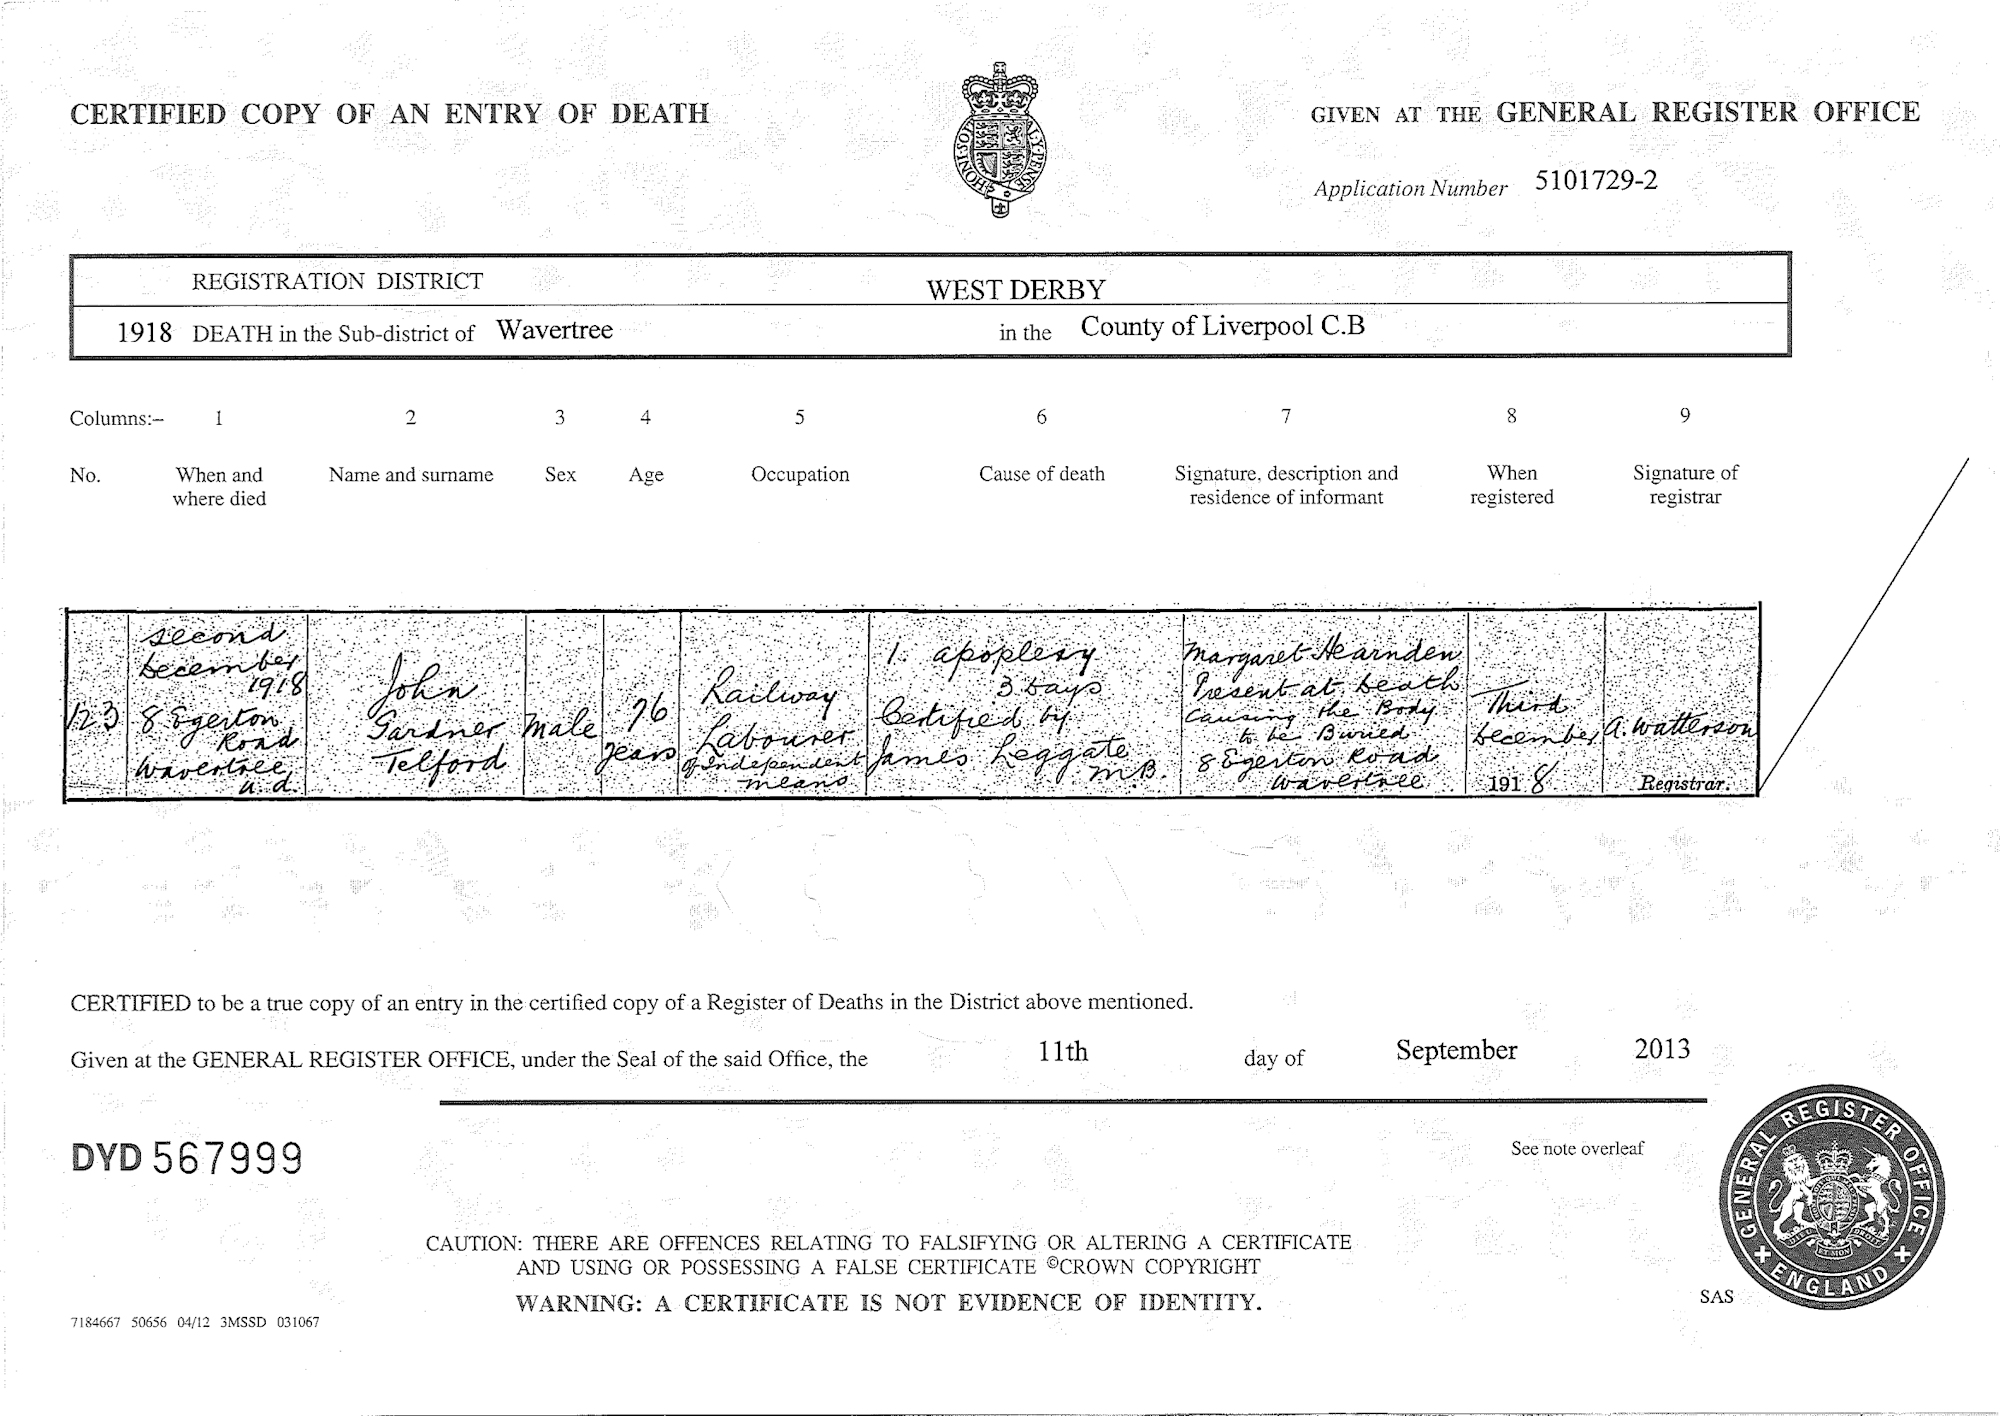 CERTIFIED COPY OF AN ENTRY OF DEATH
GIVEN AT THE GENERAL REGISTER OFFICE
HONI·SOIT
Y·PENSE
Application Number 5101729-2
REGISTRATION DISTRICT WEST DERBY
1918 DEATH in the Sub-district of Wavertree in the County of Liverpool C.B
Columns:– 1 2 3 4 5 6 7 8 9
No. When and where died
Name and surname
Sex
Age
Occupation
Cause of death
Signature, description and
residence of informant
When
registered
Signature of
registrar
123
second
December
1918
8 Egerton
Road
Wavertree
u.d.
John
Gardner
Telford
Male
76
years
Railway
Labourer
of Independent
means
1. apoplexy
3 days
Certified by
James Leggate
M.B.
Margaret Hearnden
Present at death
Causing the Body
to be Buried
8 Egerton Road
Wavertree
Third
December
1918
A. Watterson
Registrar.
CERTIFIED to be a true copy of an entry in the certified copy of a Register of Deaths in the District above mentioned.
Given at the GENERAL REGISTER OFFICE, under the Seal of the said Office, the 11th day of September 2013
DYD 567999
See note overleaf
GENERAL REGISTER OFFICE
ENGLAND
CAUTION: THERE ARE OFFENCES RELATING TO FALSIFYING OR ALTERING A CERTIFICATE
AND USING OR POSSESSING A FALSE CERTIFICATE ©CROWN COPYRIGHT
WARNING: A CERTIFICATE IS NOT EVIDENCE OF IDENTITY.
SAS
7184667 50656 04/12 3MSSD 031067